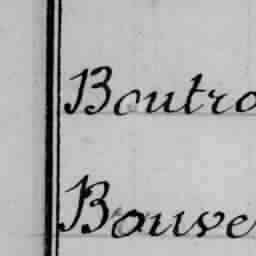 Boutro
Bouve